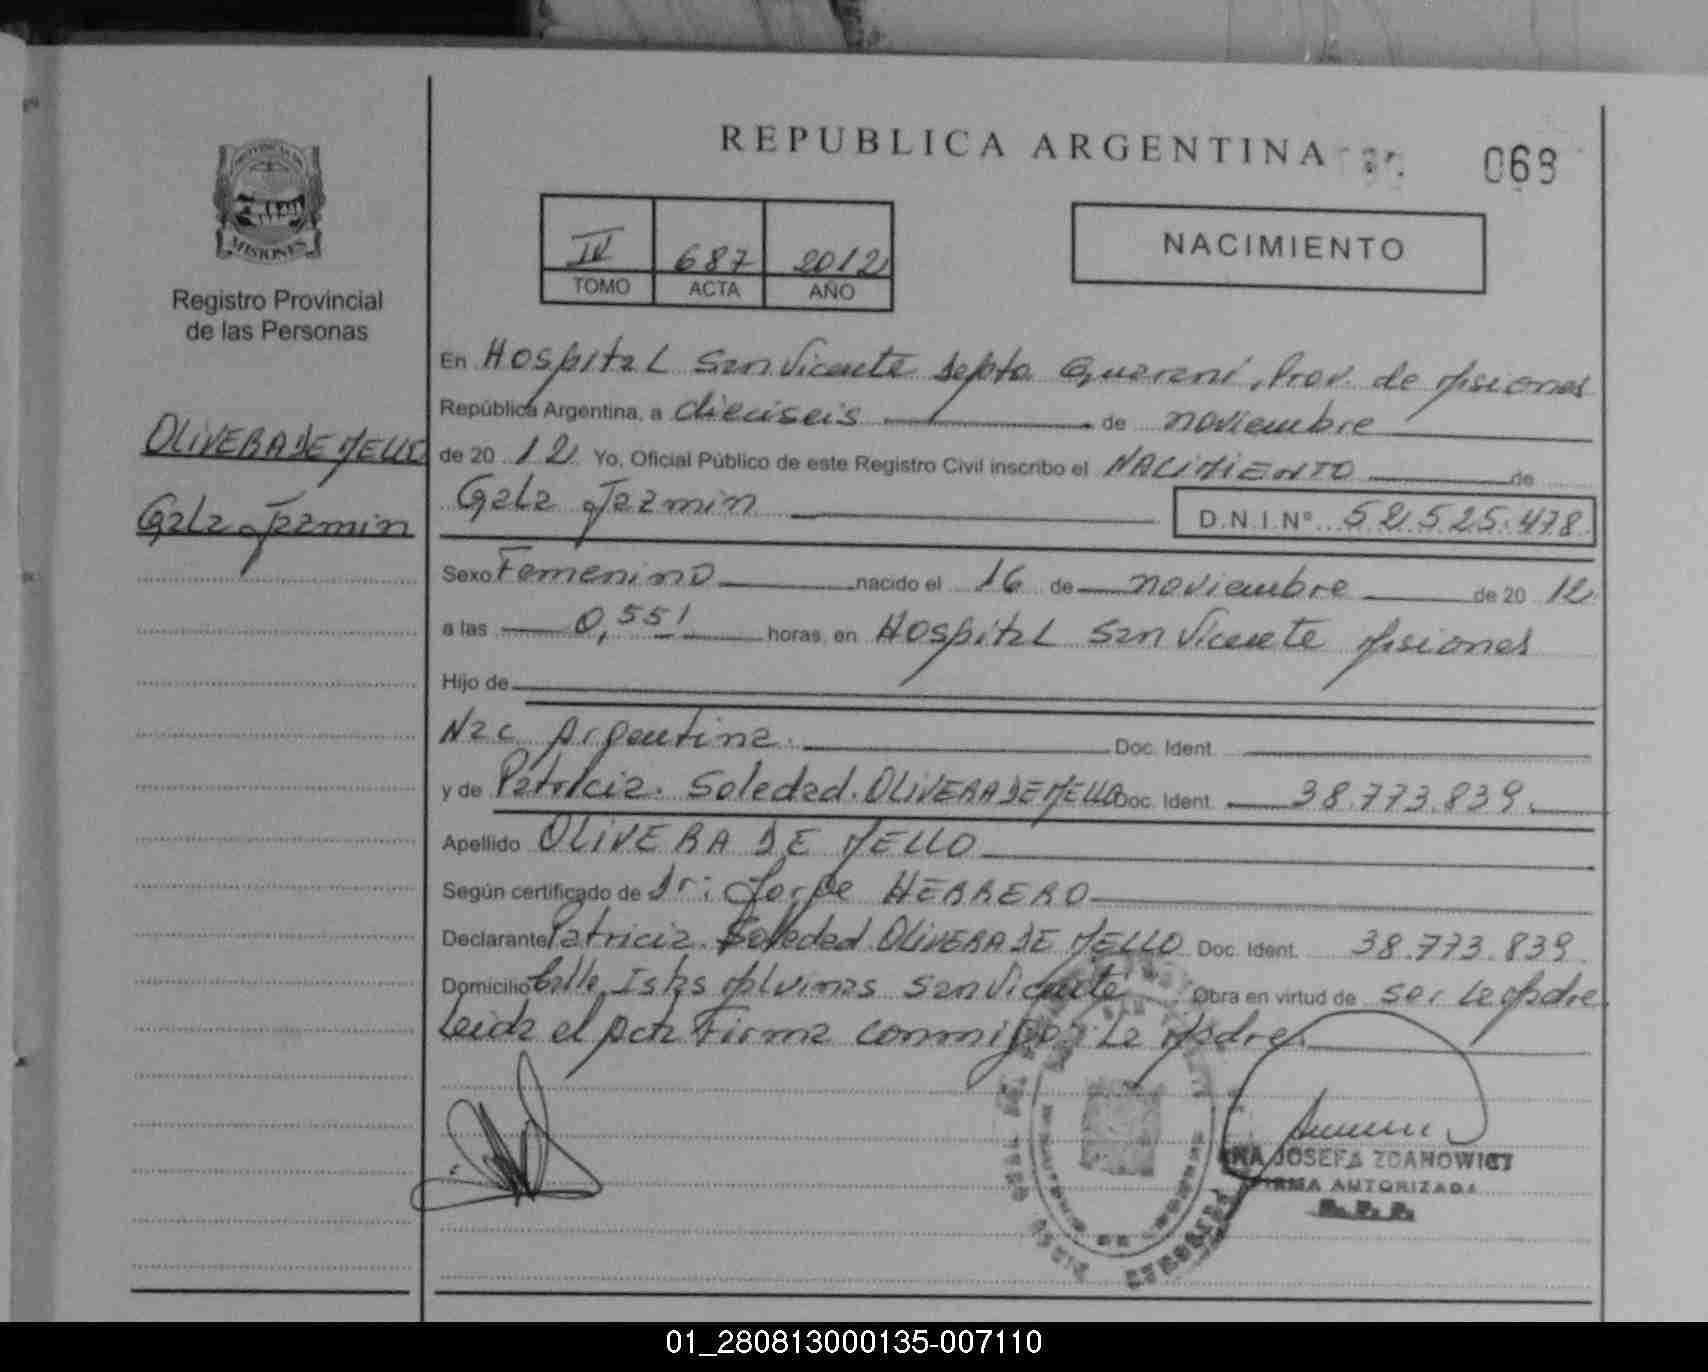 REPUBLICA ARGENTINA
068
MISIONES
Registro Provincial
de las Personas
IV 687 2012
TOMO ACTA AÑO
NACIMIENTO
OLIVERA DE MELLO
Gala Jazmin
En Hospital San Vicente Depto Guarani, Prov. de Misiones
República Argentina, a dieciseis de noviembre
de 20 12 Yo, Oficial Público de este Registro Civil inscribo el NACIMIENTO de
Gala Jazmin D.N.I.Nº 52.525.478
Sexo Femenino nacido el 16 de noviembre de 20 12
a las 0,551 horas, en Hospital San Vicente Misiones
Hijo de
Nac Argentina. Doc. Ident.
y de Patricia. Soledad. OLIVERA DE MELLO Doc. Ident. 38.773.839.
Apellido OLIVERA DE MELLO
Según certificado de Dr: Jorge HERRERO
Declarante Patricia Soledad OLIVERA DE MELLO Doc. Ident. 38.773.839.
Domicilio Calle Islas Malvinas San Vicente Obra en virtud de ser la Madre
Leida el Acta Firma conmigo: La Madre.
JOSEFA ZDANOWICZ
FIRMA AUTORIZADA
R.P.P.
01_280813000135-007110